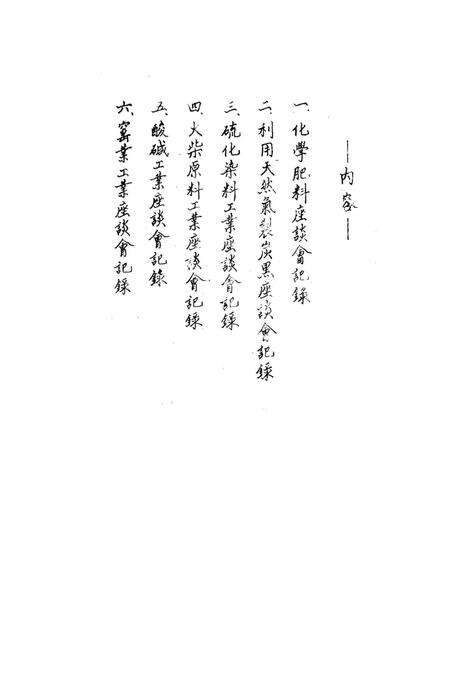 —內容—
一、化學肥料座談會記錄
二、利用天然氣製炭黑座談會記錄
三、硫化染料工業座談會記錄
四、火柴原料工業座談會記錄
五、酸碱工業座談會記錄
六、窰業工業座談會記錄